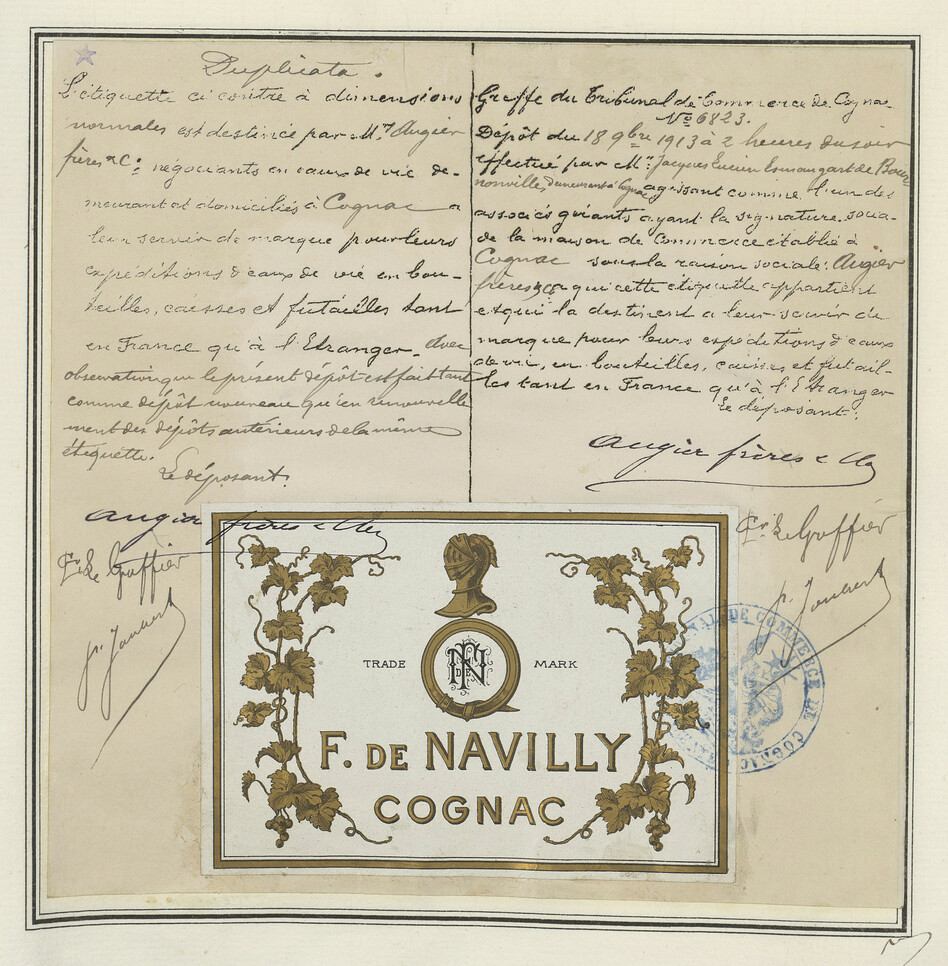 Duplicata.
L'étiquette ci contre à dimensions
normales est destinée par M.rs Augier
frères & Cie négociants en eaux de vie de-
meurant et domiciliés à Cognac a
leur servir de marque pour leurs
expéditions d'eaux de vie en bou-
teilles, caisses et futailles tant
en France qu'à l'Etranger. Avec
observation que le présent dépôt est fait tant
comme dépôt nouveau qu'en renouvelle
ment des dépôts antérieurs de la même
étiquette.
Le déposant.
Augier frères & Cie
Le Greffier
Greffe du Tribunal de Commerce de Cognac
No 6823.
Dépôt du 18 9bre 1913 à 2 heures du soir
effectué par Mr Jacques Lucien Esmangart de Bour
nonville, demeurant à Cognac agissant comme l'un des
associés gérants ayant la signature socia-
de la maison de Commerce établie à
Cognac sous la raison sociale: Augier
frères & Cie a qui cette étiquette appartient
et qui la destinent a leur servir de
marque pour leurs expéditions d'eaux
de vie, en bouteilles, caisses et futail-
les tant en France qu'à l'Etranger
Le déposant.
Augier frères & Cie
Le Greffier
TRADE MARK
F. DE NAVILLY
COGNAC
TRIBUNAL DE COMMERCE DE COGNAC